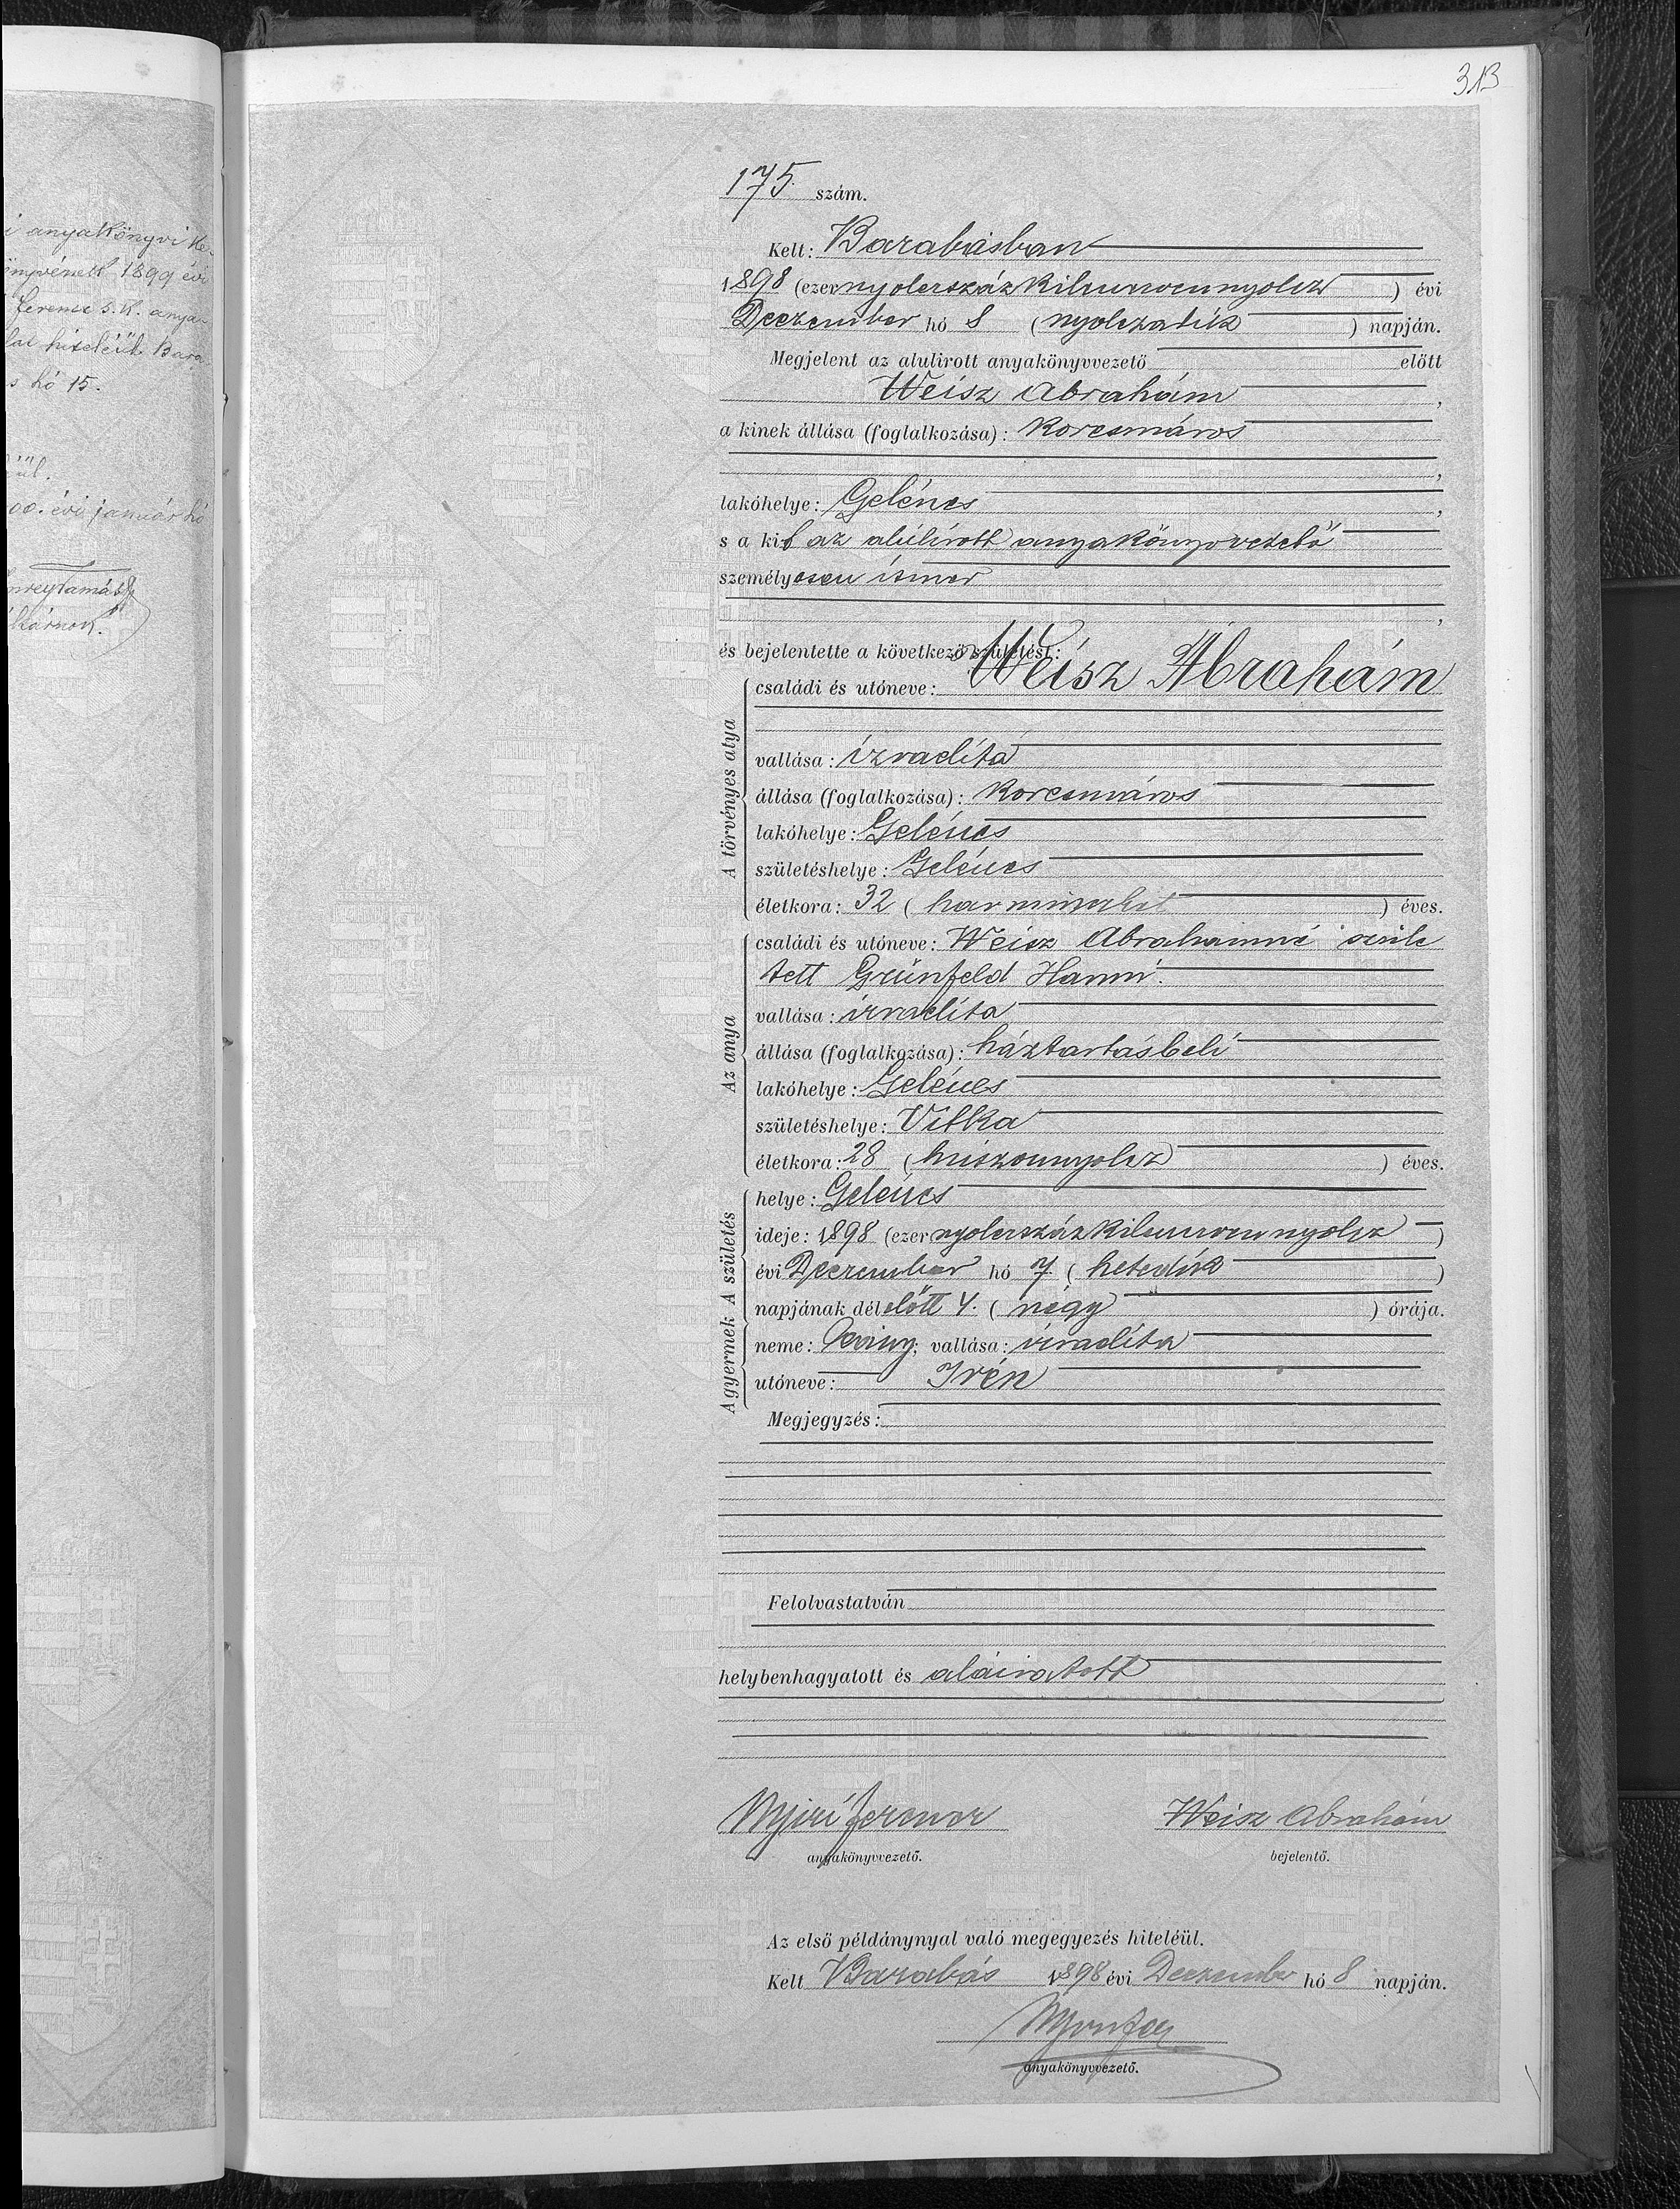 i anyakönyvi ke-
1899 évi
ferencz s. k. anya-
hiteléül Bara-
s hó 15.
ül.
00. évi január hó
313
175. szám.
Kelt: Barabásban
1898 (ezernyolczszázkilenczvennyolcz) évi
Deczember hó 8 (nyolczadik) napján.
Megjelent az alulirott anyakönyvvezető előtt
Weisz Abrahám,
a kinek állása (foglalkozása): Korcsmáros
,
lakóhelye: Gelénes,
s a kit az alúlírott anyakönyvvezető
személyesen ismer
,
és bejelentette a következő születést:
A törvényes atya
családi és utóneve: Weisz Abrahám
vallása: izraelita
állása (foglalkozása): Korcsmáros
lakóhelye: Gelénes
születéshelye: Gelénes
életkora: 32 (harminczkét) éves.
Az anya
családi és utóneve: Weisz Abrahámné szüle
tett Grünfeld Hanni.
vallása: izraelita
állása (foglalkozása): háztartásbeli
lakóhelye: Gelénes
születéshelye: Vitka
életkora: 28 (huszonnyolcz) éves.
A születés
helye: Gelénes
ideje: 1898 (ezernyolczszázkilenczvennyolcz)
évi Deczember hó 7 (hetedik)
napjának délelőtt 4. (négy) órája.
A gyermek
neme: leány; vallása: izraelita
utóneve: Irén
Megjegyzés:
Felolvastatván
helybenhagyatott és aláiratott
Nyiri ferencz Weisz Abrahám
anyakönyvvezető. bejelentő.
Az első példánynyal való megegyezés hiteléül.
Kelt Barabás 1898 évi Deczember hó 8 napján.
anyakönyvvezető.